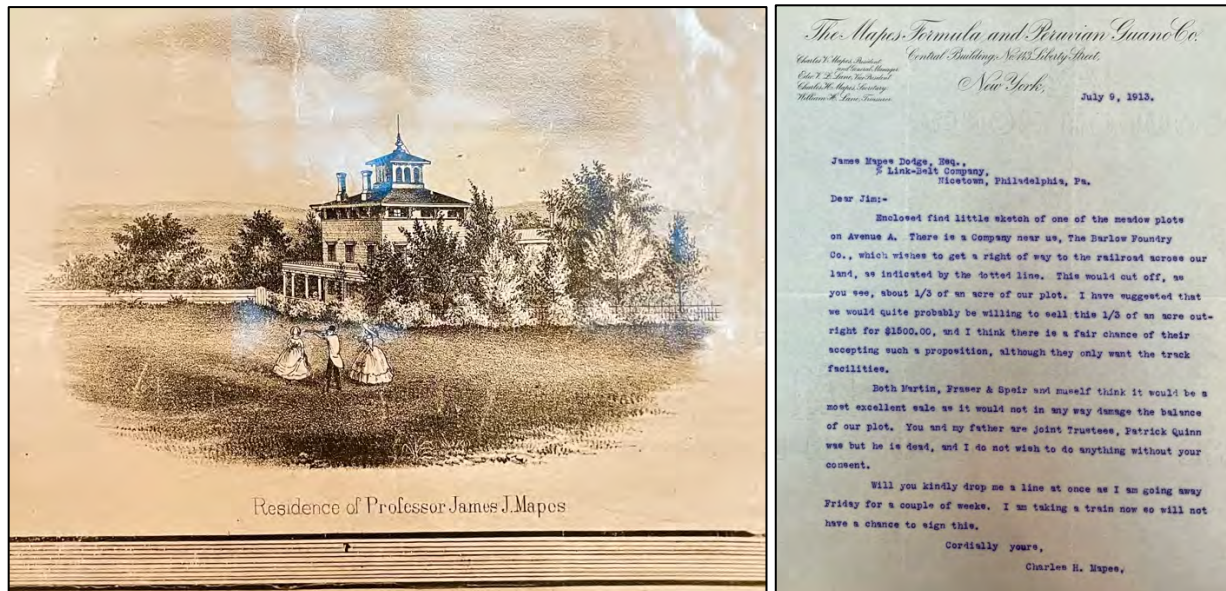 Residence of Professor James J. Mapes
The Mapes Formula and Peruvian Guano Co.
Central Building, No 143 Liberty Street,
Charles V. Mapes, President
and General Manager
Vice President
Charles H. Mapes, Secretary
William H. Lane, Treasurer
New York,
July 9, 1913.
James Mapes Dodge, Esq.,
% Link-Belt Company,
Nicetown, Philadelphia, Pa.
Dear Jim:-
Enclosed find little sketch of one of the meadow plots
on Avenue A. There is a Company near us, The Barlow Foundry
Co., which wishes to get a right of way to the railroad across our
land, as indicated by the dotted line. This would cut off, as
you see, about 1/3 of an acre of our plot. I have suggested that
we would quite probably be willing to sell this 1/3 of an acre out-
right for $1500.00, and I think there is a fair chance of their
accepting such a proposition, although they only want the track
facilities.
Both Martin, Fraser & Speir and muself think it would be a
most excellent sale as it would not in any way damage the balance
of our plot. You and my father are joint Trustees, Patrick Quinn
was but he is dead, and I do not wish to do anything without your
consent.
Will you kindly drop me a line at once as I am going away
Friday for a couple of weeks. I am taking a train now so will not
have a chance to sign this.
Cordially yours,
Charles H. Mapes,